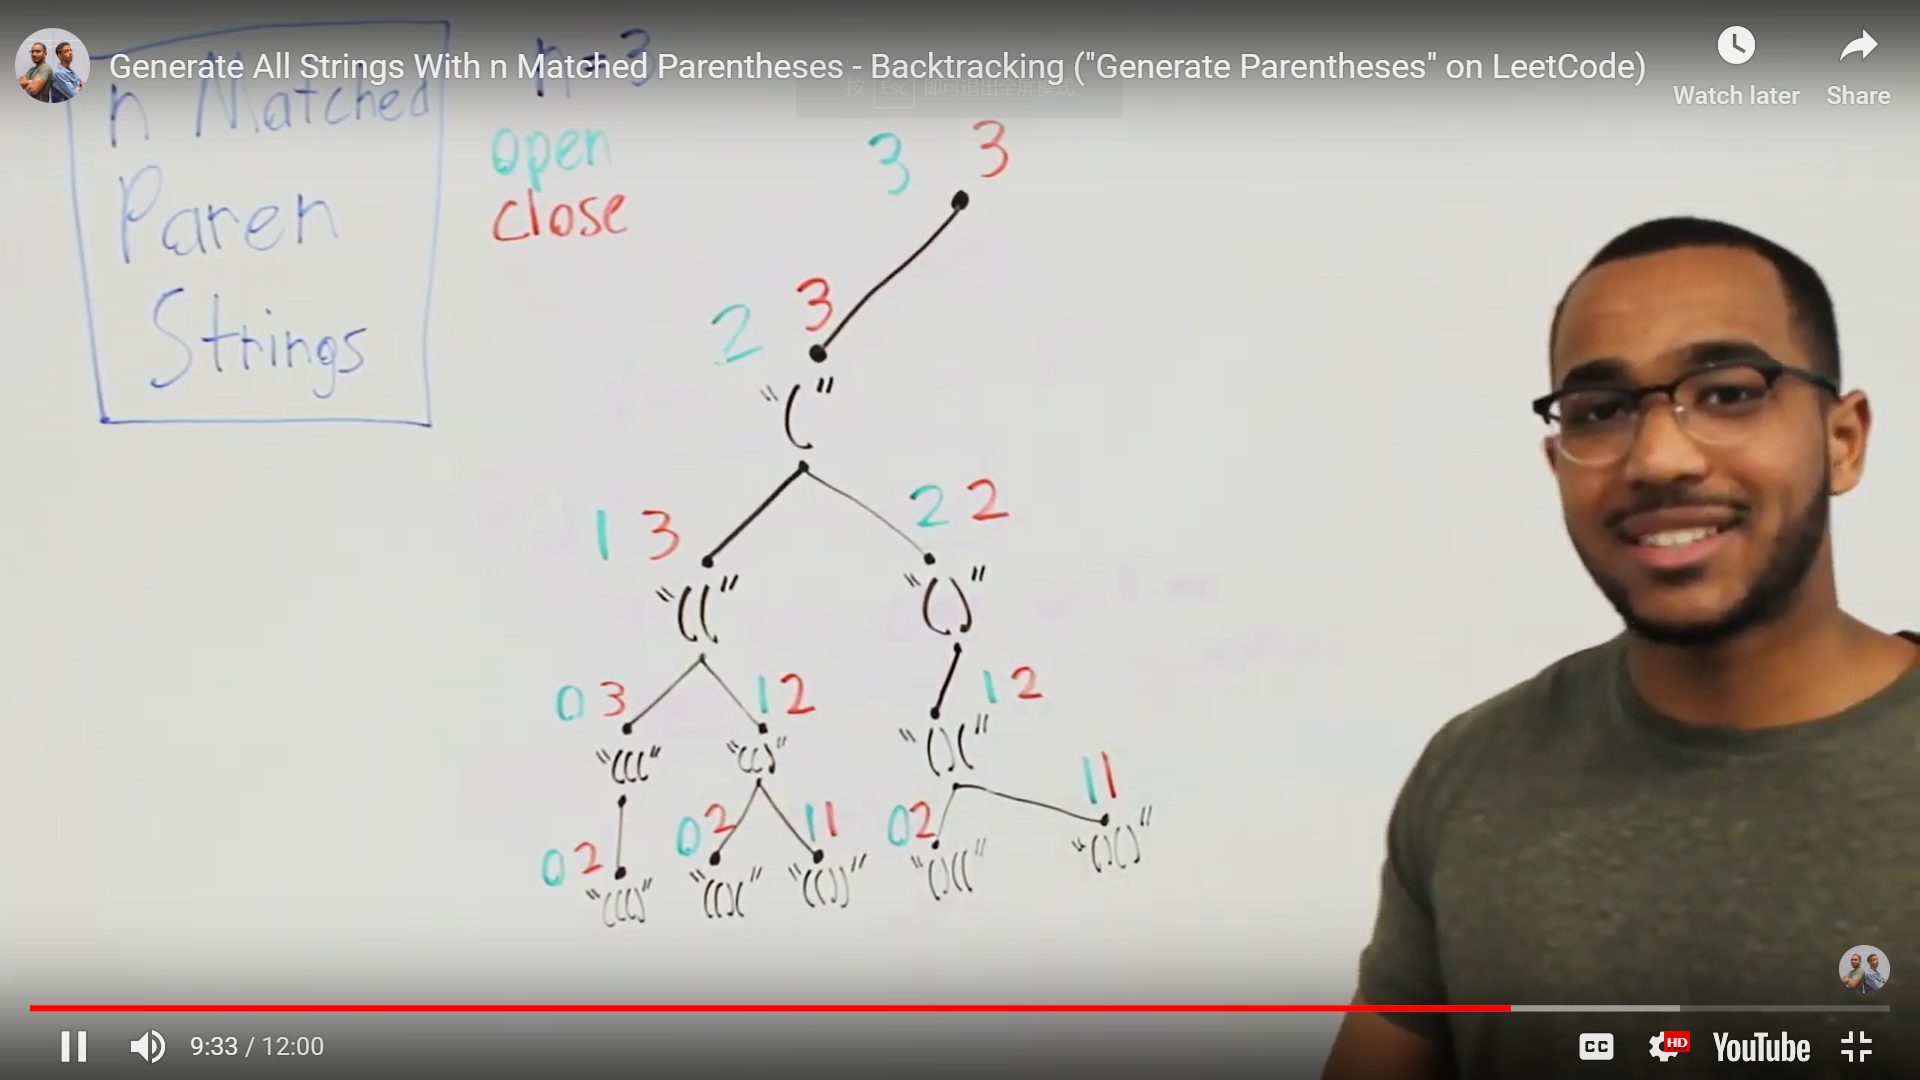 Generate All Strings With n Matched Parentheses - Backtracking ("Generate Parentheses" on LeetCode)
Watch later
Share
按 Esc 即可退出全屏模式
n Matched
Paren
Strings
n=3
open
close
3 3
2 3
"("
1 3
2 2
"(("
"()"
0 3
1 2
1 2
"((("
"(()"
"()("
0 2
0 2
1 1
0 2
1 1
"((()"
"(()("
"(())"
"()(("
"()()"
9:33 / 12:00
CC
HD
YouTube